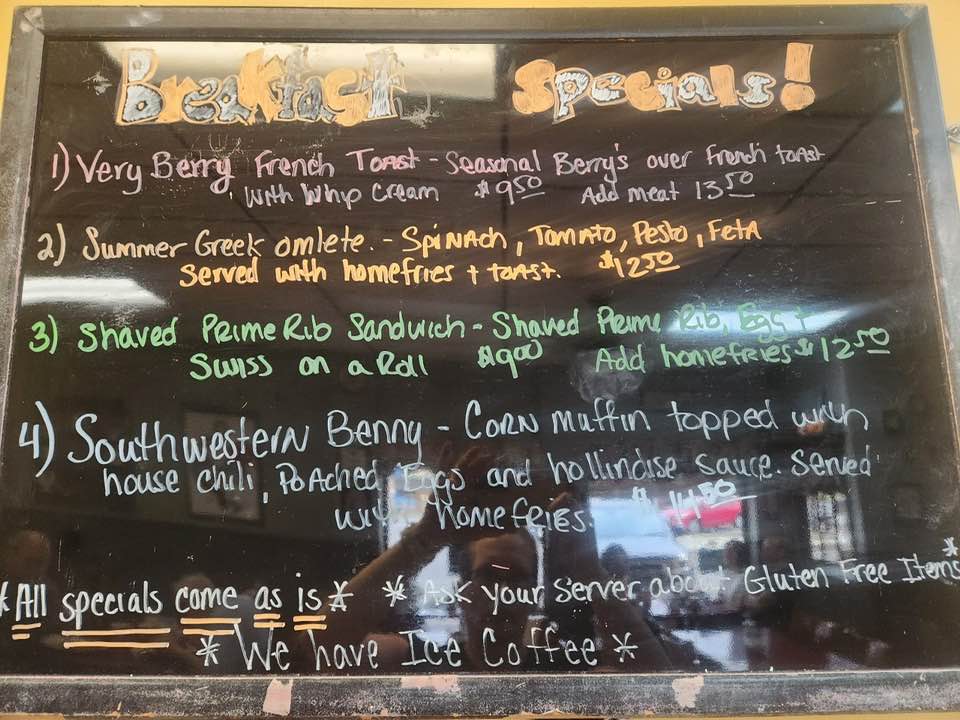 Breakfast Specials!
1) Very Berry French Toast - Seasonal Berry's over French toast
with Whip Cream $9.50 Add meat 13.50
2) Summer Greek omlete. - Spinach, Tomato, Pesto, Feta
Served with homefries + toast. $12.50
3) Shaved Prime Rib Sandwich - Shaved Prime Rib, Egg +
Swiss on a Roll $9.00 Add homefries $12.50
4) Southwestern Benny - Corn muffin topped with
house chili, Poached Eggs and hollindise sauce. Served
with homefries. $14.50
*All specials come as is* *Ask your Server about Gluten Free Items*
*We have Ice Coffee*